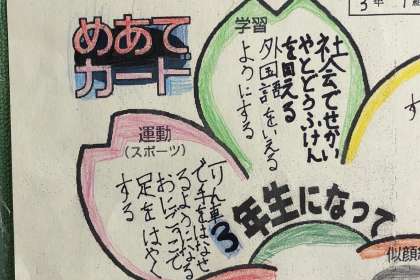 めあて
カード
3年 1組
学習
社会でせかい
やとどうふけん
を回える
外国語をいえる
ようにする
す
運動
(スポーツ)
一りん車
で手をはなせ
るようになる
おにごっこで
足をはやく
する
3年生になって
似顔